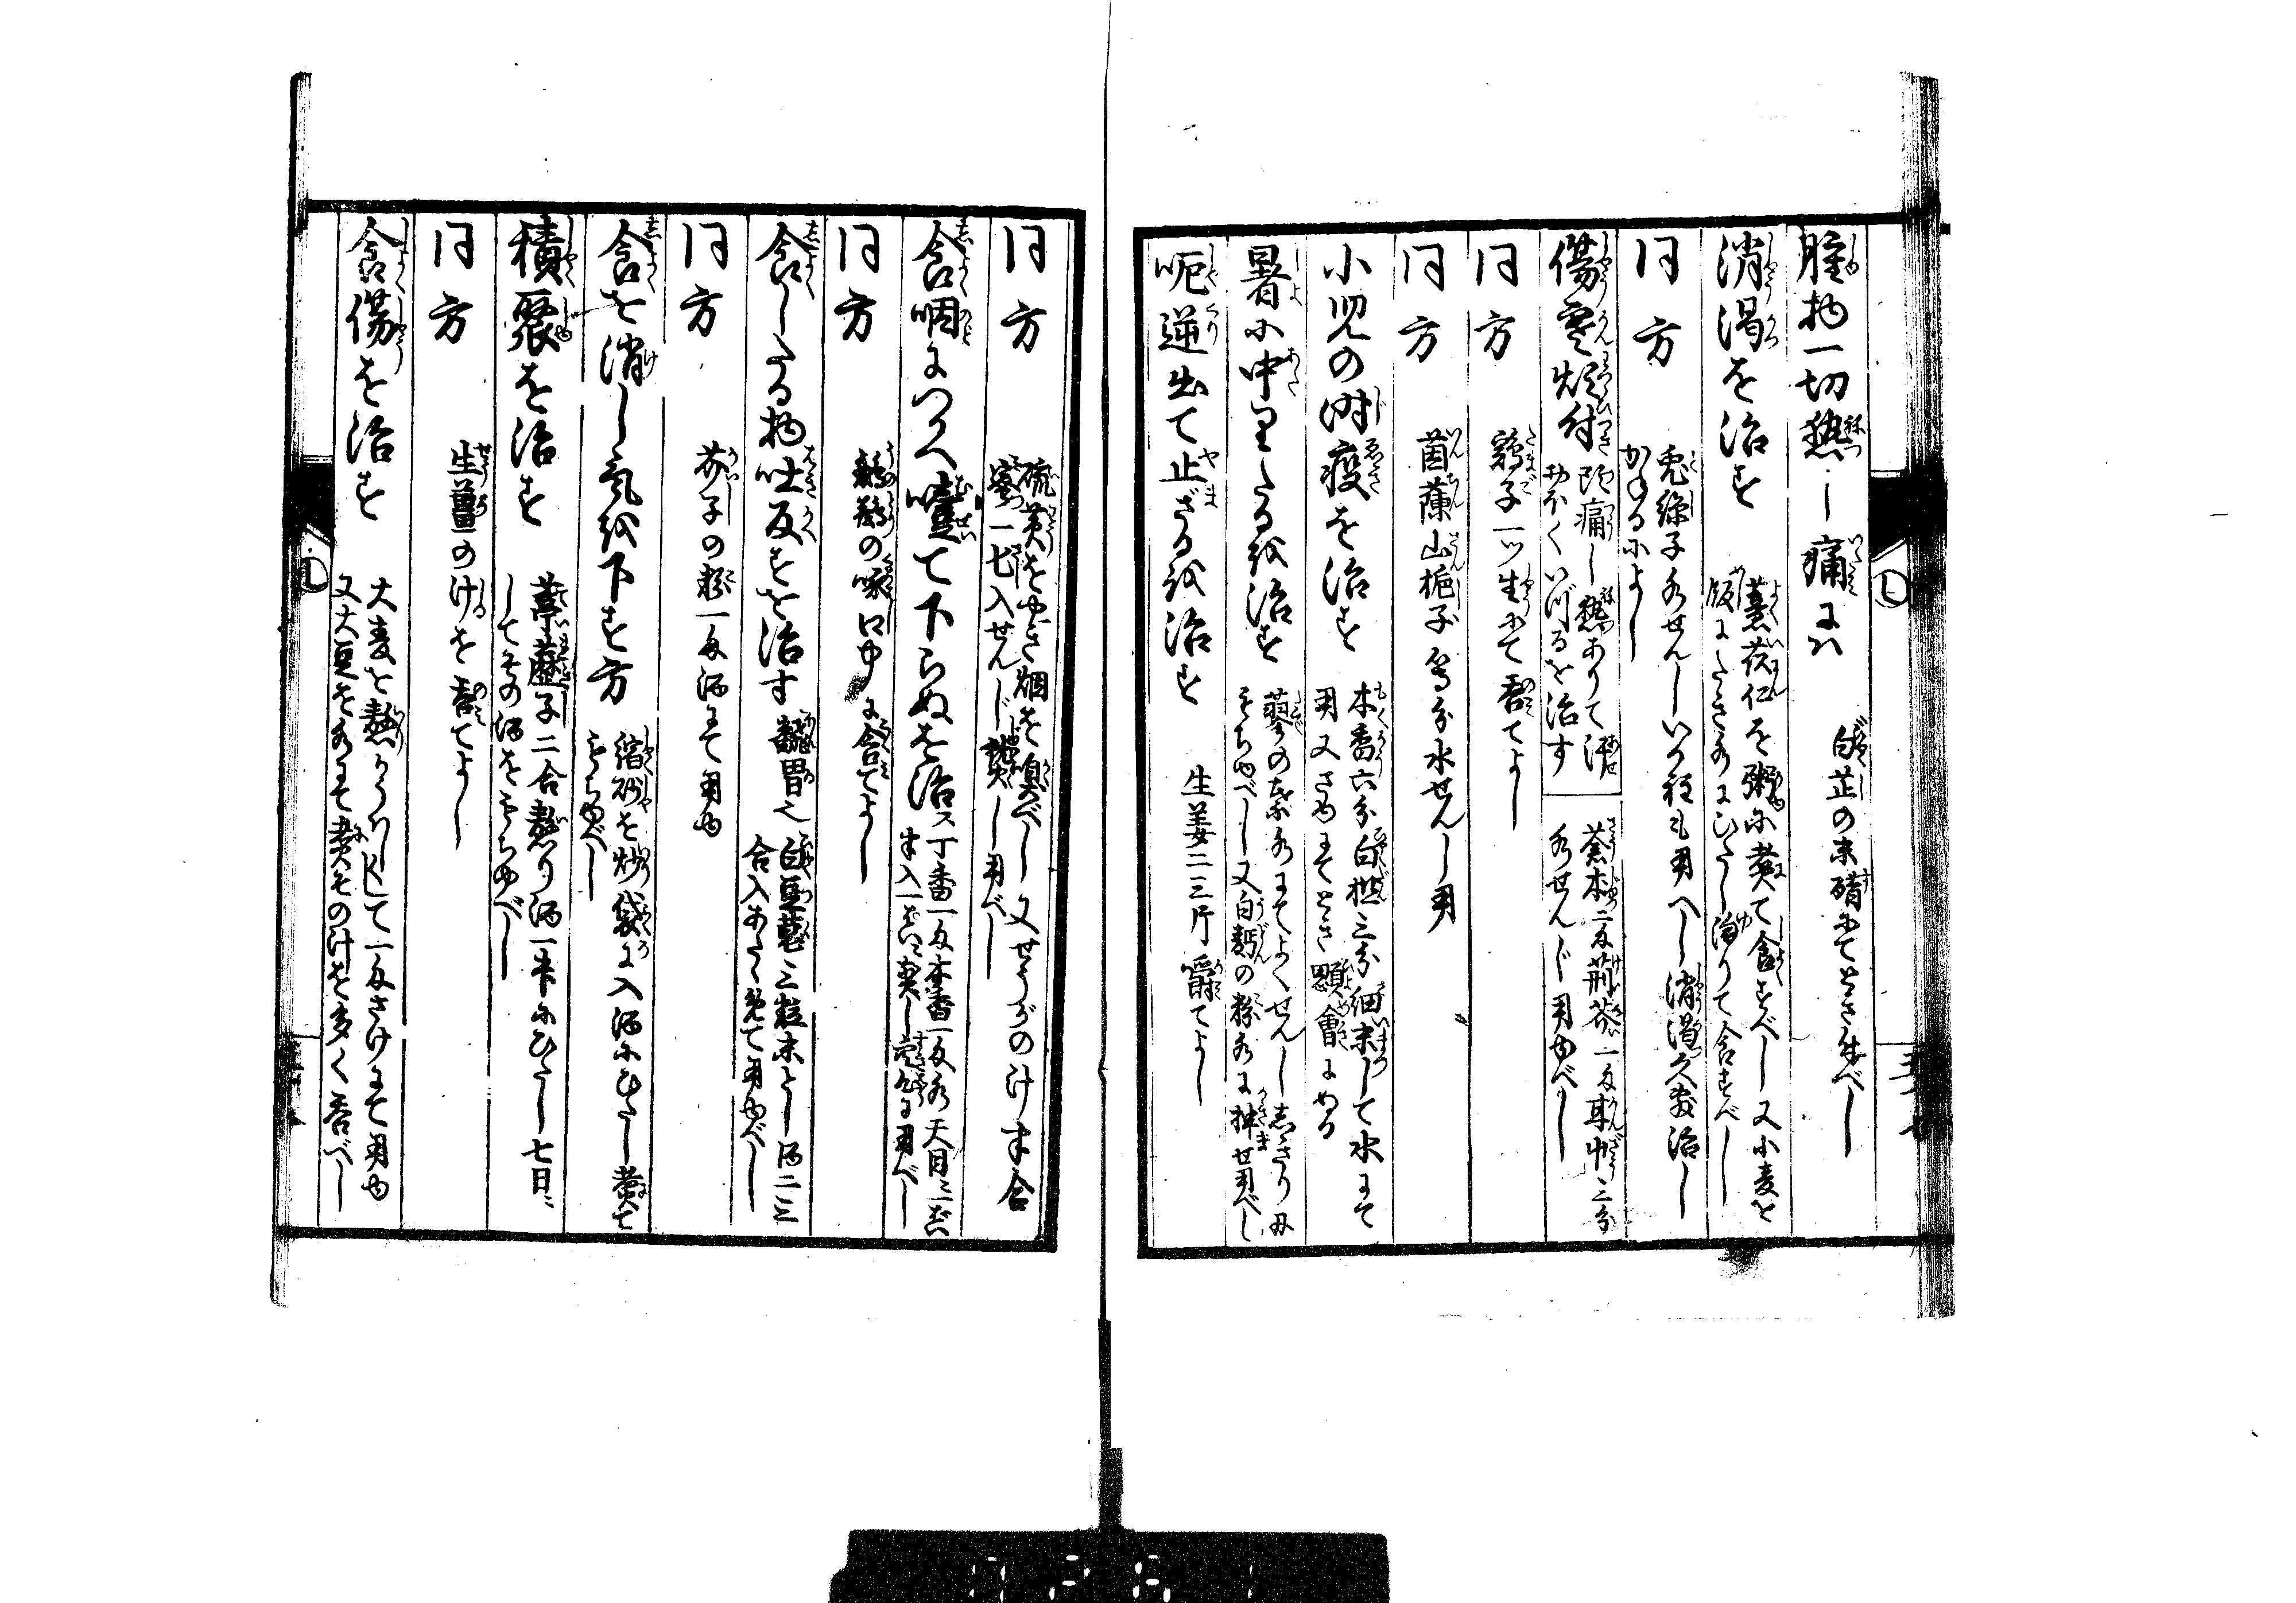 腫物一切熱し痛には
白芷の末醋にてとき付べし
消渇を治す
薏苡仁を粥に煮て食すべし又小麦を
飯にたき水にひたし洵りて食すべし
同方
兎絲子水せんしいか程も用へし消渇久敷治し
かぬるによし
傷寒煩付
頭痛し熱ありて汗
おほくいづるを治す
蒼朮二匁荊芥一匁甘中三分
水せんじ用ゆべし
同方
鶏子一ツ生にて呑てよし
同方
茵蔯山梔子等分水せんし用
小児の時疫を治す
木香六分白檀三分細末して水にて
用又さめにてとき顖會にぬる
暑に中りたるを治す
蓼の葉水にてよくせんししきり
もちゆべし又白麪の粉水に抻せ用べし
呃逆出て止ざるを治す
生姜二三片嚼てよし
同方
硫黄をやき烟を嗅べし又せうがの汁半合
蜜一匕入せんじ煖し用べし
食咽につかへ噎て下らぬを治ス
丁香一匁木香一匁水天目ニ一盃
半入一盃ニ煎し用べし
同方
鸕鷀の喙口中に含てよし
食したる物吐反すを治す
白豆蔲三粒末とし酒二三
合入あたゝめて用ゆべし
同方
芥子の粉一匁酒にて用ゆ
食を消し気を下す方
縮砂を炒袋に入酒にひたし煮て
もちゆべし
積聚を治す
葶藶子二合熬り酒一升にひたし七日ニ
してその酒をもちゆべし
同方
生薑の汁を呑てよし
食傷を治す
大麦を熱かうばしくして一匁さけにて用ゆ
又大豆を水にて煮その汁を多く呑べし